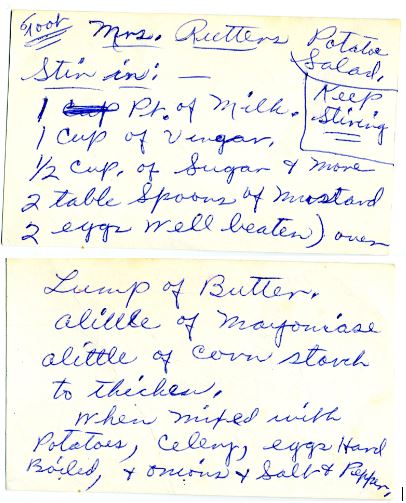 Good Mrs. Rutters Potatoe
Salad.
Stir in: —
Keep
Stiring
1 Pt. of Milk.
1 Cup of Vingar.
1/2 Cup. of Sugar & more
2 table Spoons of Mustard
2 eggs well beaten) over
Lump of Butter.
alittle of Mayoniase
alittle of Corn starch
to thicken.
When mixed with
Potatoes, Celery, eggs Hard
Boiled, & onions & Salt & Pepper.